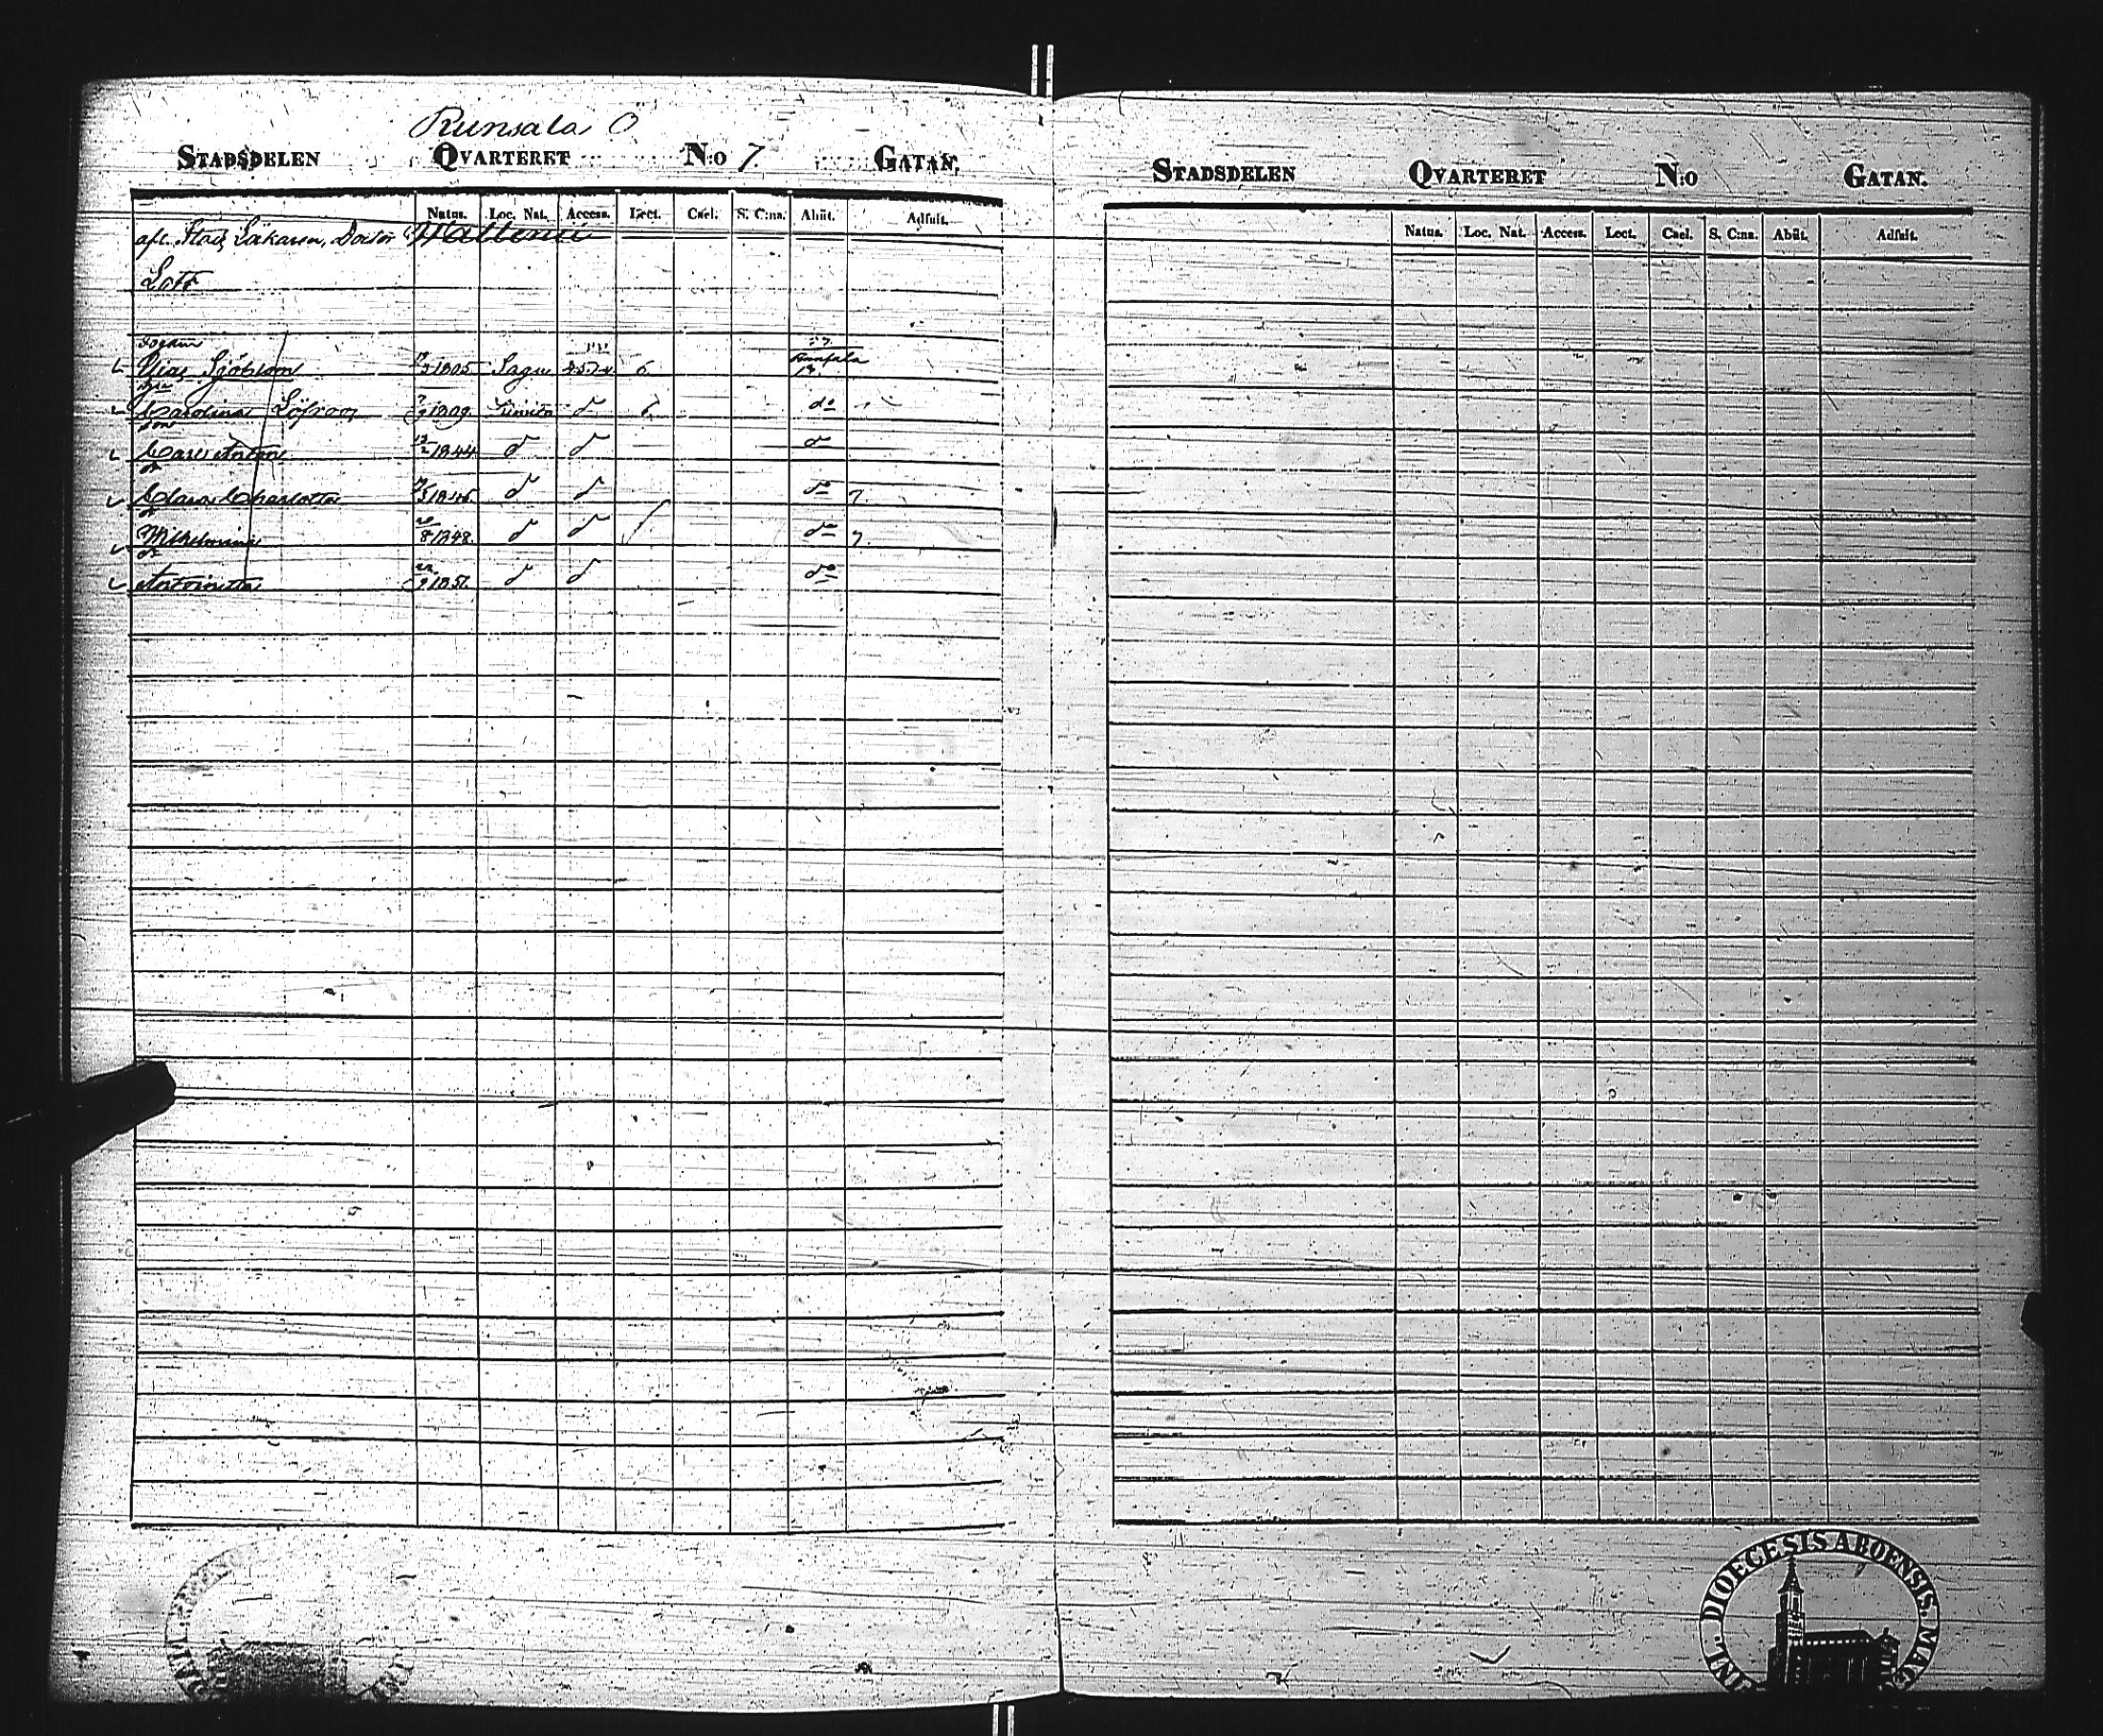 Runsala Ö
STADSDELEN QVARTERET N:o 7. GATAN.
Natus. Loc. Nat. Access. Lect. Cael. S. C:na. Abiit. Adfuit.
afl. Stads Läkaren, Doctor Wallenii
Lott
Elias Sjöblom 1805 Sagu 6. Runsala
Carolina Löfroos 1809 Kimito do 6. do
son
Carl Anton 1844 do do do
Clara Charlotta do do do 7.
Wilhelmina 1848 do do do 7.
Antoinetta 1851 do do do
STADSDELEN QVARTERET N:o GATAN.
Natus. Loc. Nat. Access. Lect. Cael. S. C:na. Abiit. Adfuit.
DIOECESIS ABOENSIS